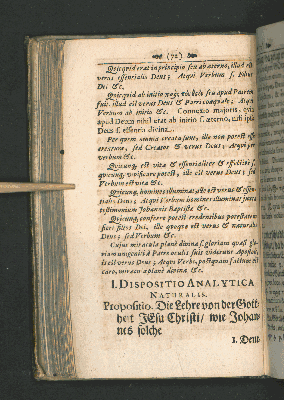 (72)
Quicquid erat in principio seu ab æterno, illud est
verus essentialis Deus; Atqui Verbum s. Filius
Dei &c.
Quicquid ab initio seu apud Patrem
fuit, illud est verus Deus & Patri coæquale; Atqui
Verbum ab initio &c. Connexio majoris, quia
apud Deum nihil est ab initio s. æterno, nisi ipse
Deus s. essentia divina.
Per quem omnia creata sunt, ille non potest esse
creatura, sed Creator & verus Deus; Atqui per
verbum &c.
Quicunq; est vita & essentialiter & effective s.
quicunq; vivificare potest, ille est verus Deus; sed
Verbum est vita &c.
Quicunq; homines illuminat, iste est verus & essen-
tialis Deus; Atqui Verbum homines illuminat juxta
testimonium Johannis Baptistæ &c.
Quicunq; conferre potest credentibus potestatem
fieri filios Dei, ille quoque est verus & naturalis
Deus; sed Verbum &c.
Cujus miracula planè divina s. gloriam quasi glo-
riam unigeniti à Patre oculis suis viderunt Apostoli,
is est verus Deus; Atqui Verbi, postquam factum est
caro, miracula planè divina &c.
I. DISPOSITIO ANALYTICA
NATURALIS.
Propositio. Die Lehre von der Gott-
heit JEsu Christi/ wie Johan-
nes solche
1. Deut